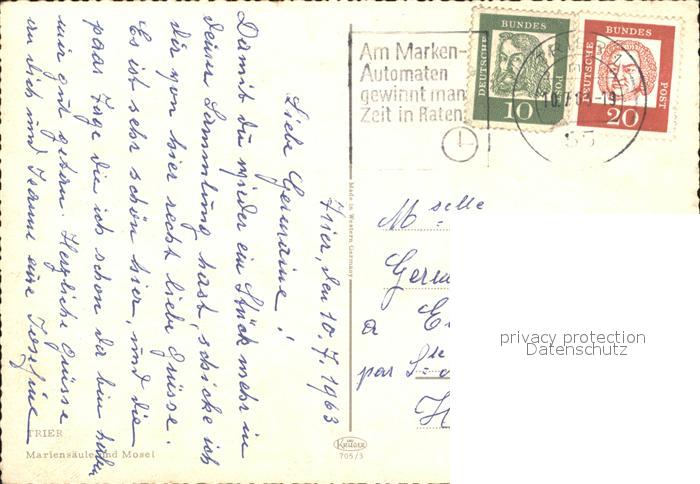 Trier, den 10.7.1963
Liebe Germaine!
Damit du wieder ein Stück mehr in
deiner Sammlung hast, schicke ich
dir von hier recht liebe Grüsse.
Es ist sehr schön hier, und die
paar Tage die ich schon da bin haben
mir gut getan. Herzliche Grüsse
an dich und Jeanne eure Josefine
TRIER
Mariensäule und Mosel
Made in Western Germany
Krüger
705/3
Am Marken-
Automaten
gewinnt man
Zeit in Raten!
DEUTSCHE BUNDES POST
10
DEUTSCHE BUNDES POST
20
Mselle
Germ
a
par
privacy protection
Datenschutz